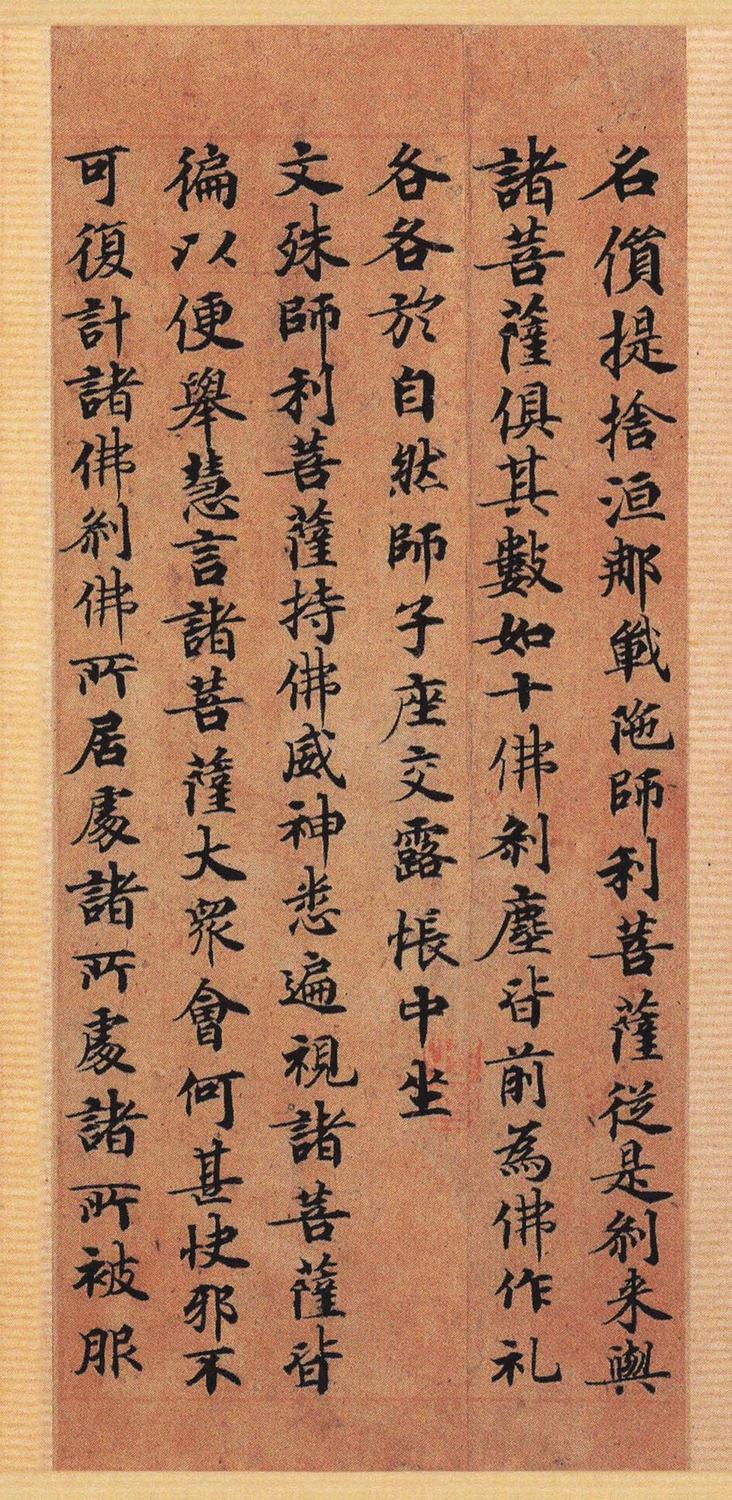 名提捨洹那戰陁師利菩薩從是刹来與
諸菩薩俱其數如十佛刹塵皆前為佛作礼
各各於自然師子座交露帳中坐
文殊師利菩薩持佛威神悉遍視諸菩薩皆
徧以便舉慧言諸菩薩大眾會何甚快邪不
可復計諸佛刹佛所居處諸所處諸所被服